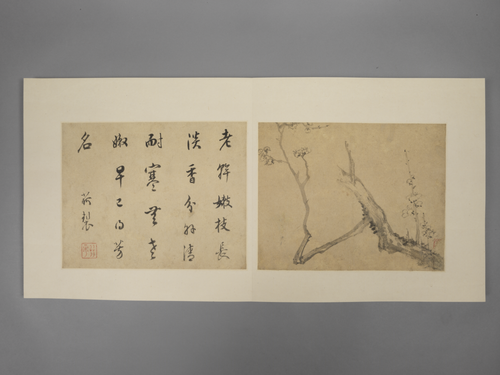 老榦嫩枝長
淡香分外清
耐寒無老
嫩早已得芳
名
製